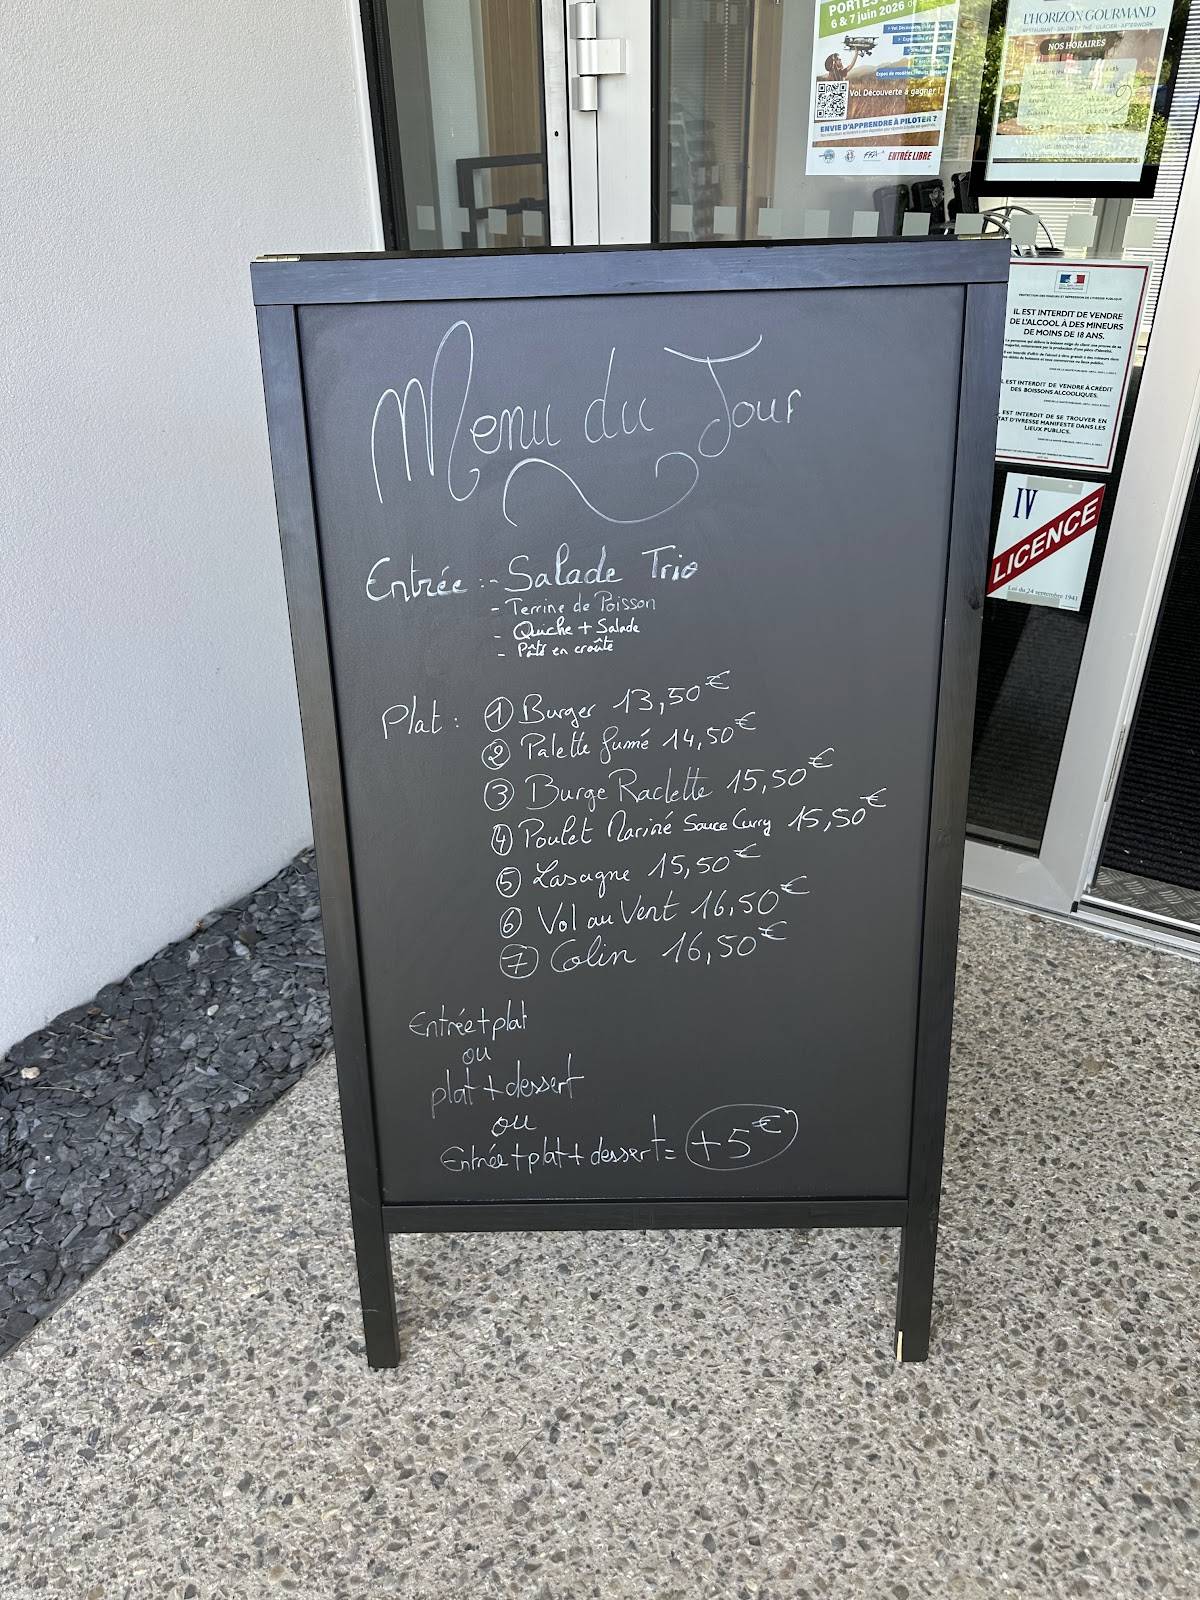 PORTES
6 & 7 juin 2026
Vol Découverte à gagner !
ENVIE D'APPRENDRE À PILOTER ?
FFA
ENTRÉE LIBRE
L'HORIZON GOURMAND
RESTAURANT - SALON DE THÉ - GLACIER - AFTERWORK
NOS HORAIRES
IL EST INTERDIT DE VENDRE
DE L'ALCOOL À DES MINEURS
DE MOINS DE 18 ANS.
EST INTERDIT DE VENDRE À CRÉDIT
DES BOISSONS ALCOOLIQUES.
EST INTERDIT DE SE TROUVER EN
TAT D'IVRESSE MANIFESTE DANS LES
LIEUX PUBLICS.
IV
LICENCE
Loi du 24 septembre 1941
Menu du Jour
Entrée :- Salade Trio
- Terrine de Poisson
- Quiche + Salade
- Pâté en croûte
Plat : 1 Burger 13,50€
2 Palette fumé 14,50€
3 Burge Raclette 15,50€
4 Poulet Mariné Sauce Curry 15,50€
5 Lasagne 15,50€
6 Vol au Vent 16,50€
7 Colin 16,50€
Entrée+plat
ou
plat + dessert
ou
Entrée+plat+dessert= +5€